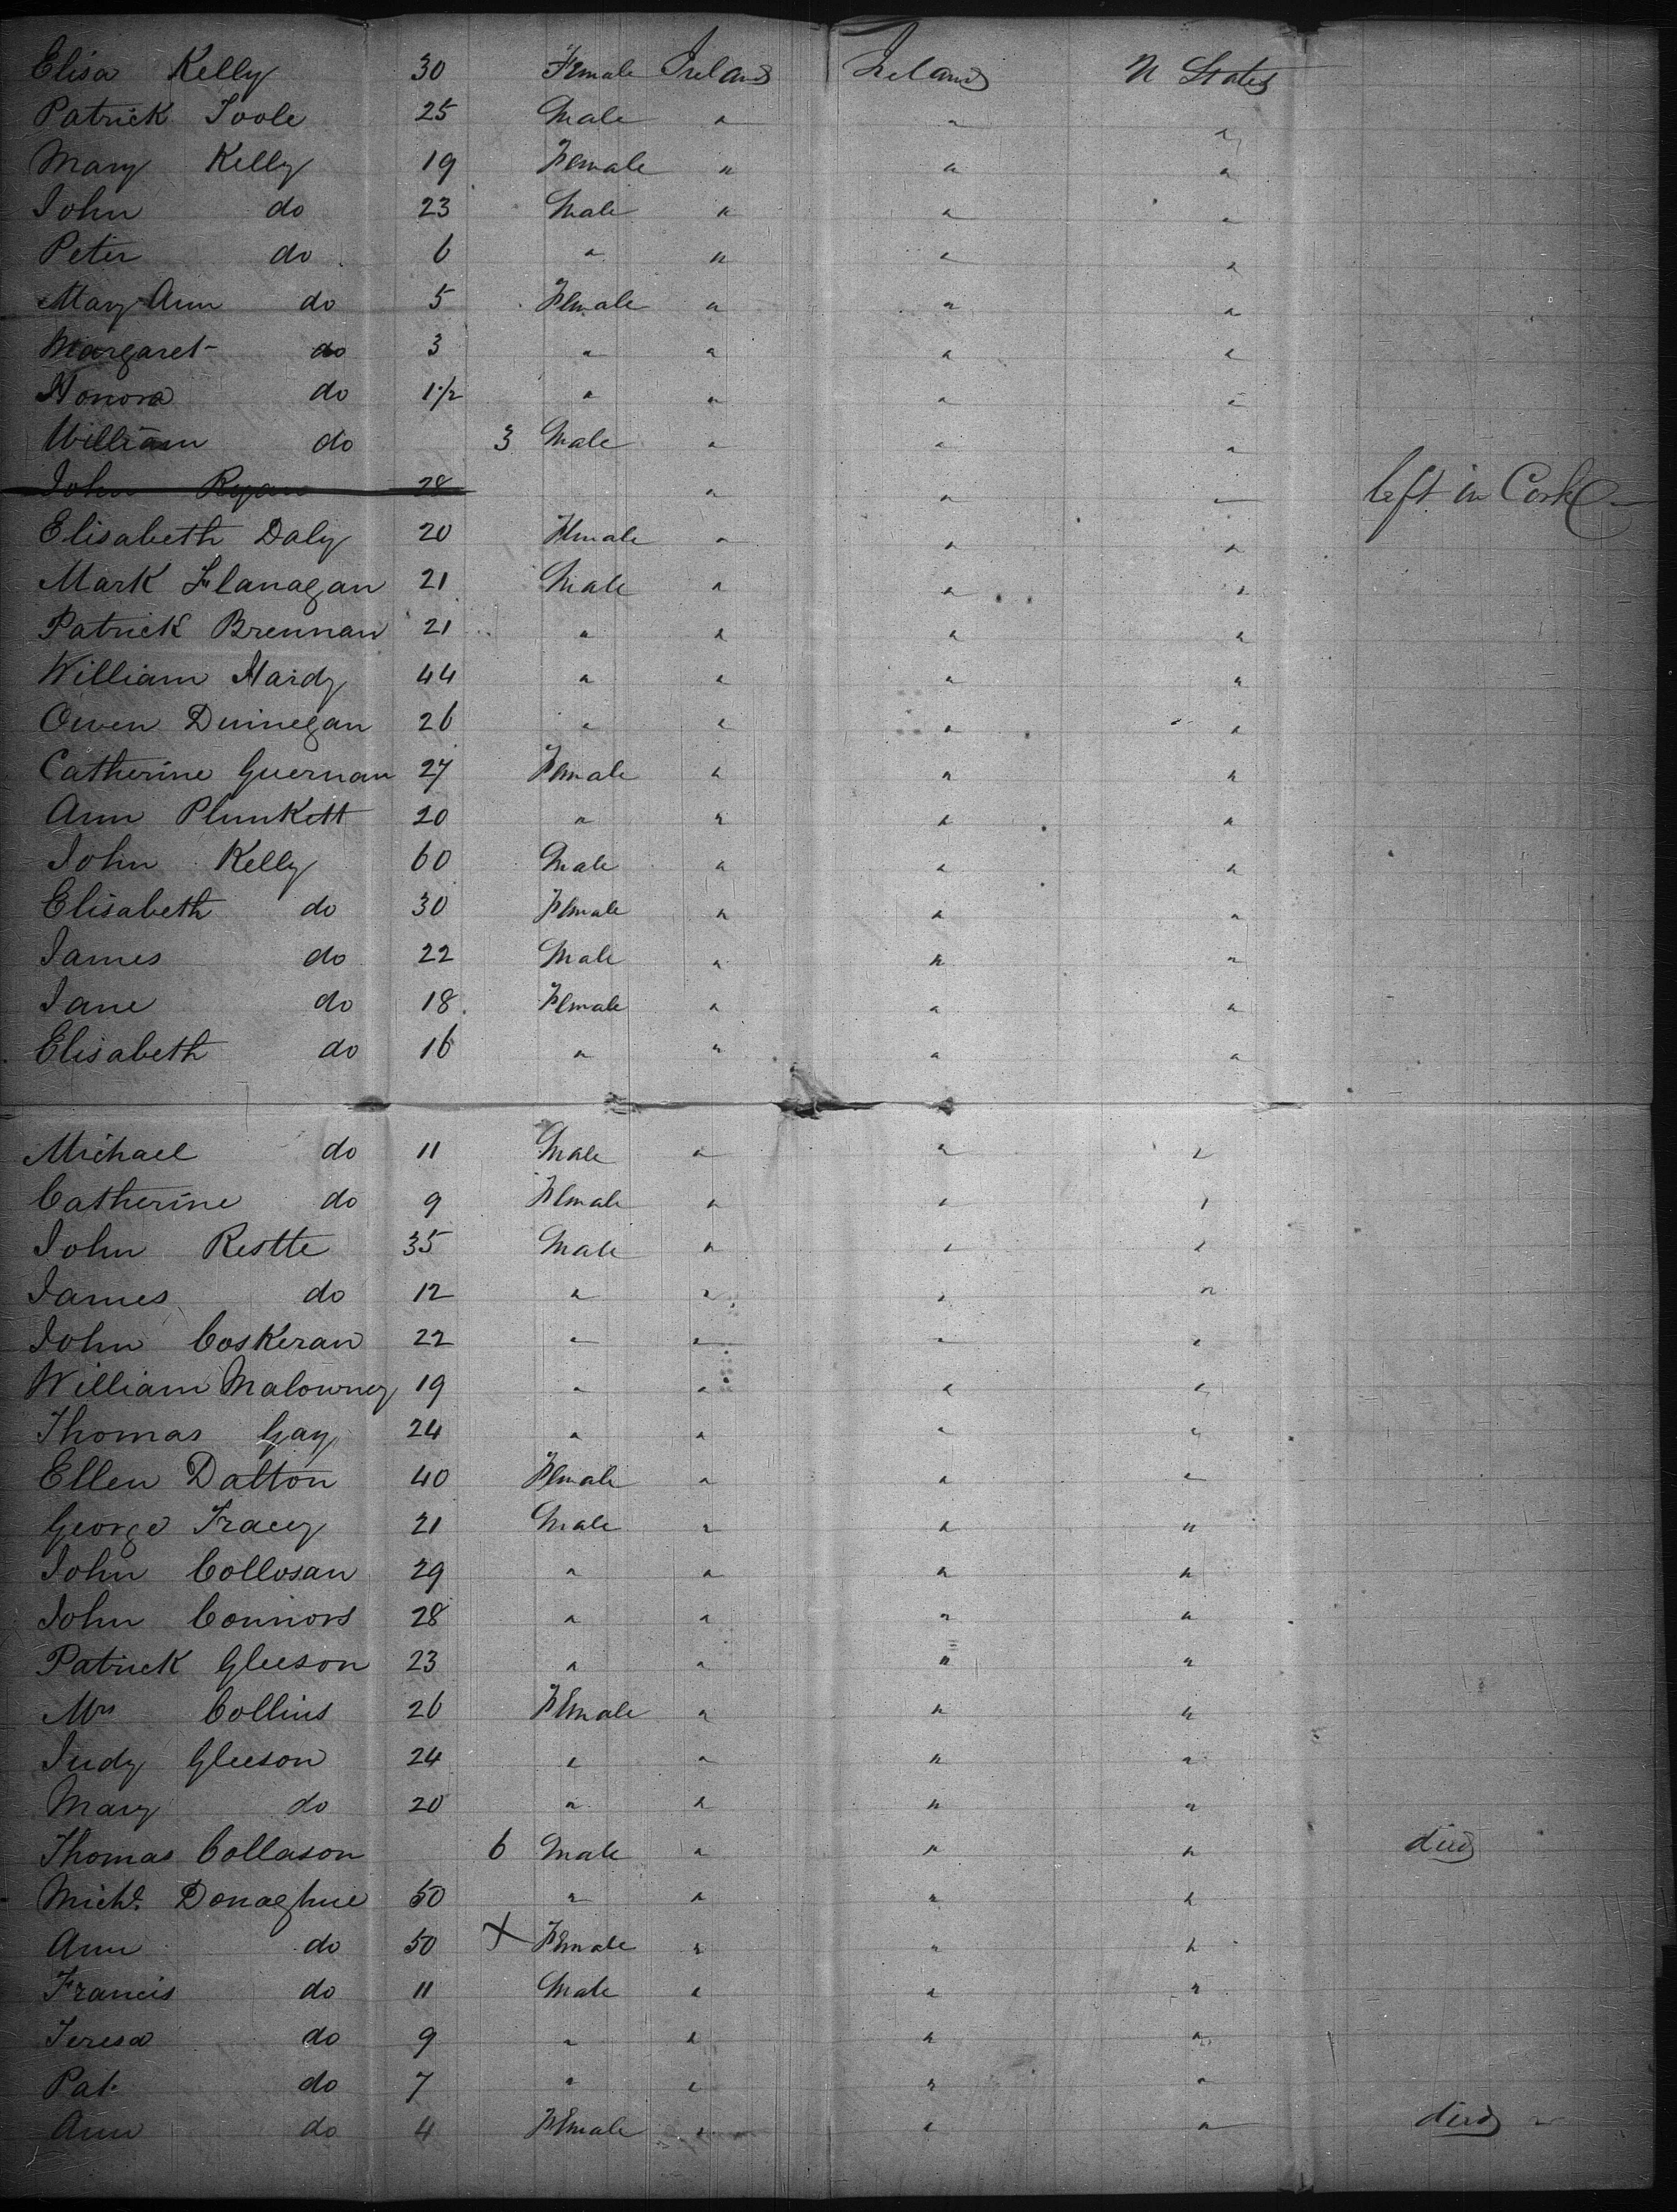 Elisa Kelly 30 Female Ireland Ireland U States
Patrick Toole 25 Male " " "
Mary Kelly 19 Female " " "
John do 23 Male " " "
Peter do 6 " " " "
Mary Ann do 5 Female " " "
Margaret do 3 " " " "
Honora do 1 1/2 " " " "
William do 3 Male " " "
John Ryan 28 " " " left in Cork
Elisabeth Daly 20 Female " " "
Mark Flanagan 21 Male " " "
Patrick Brennan 21 " " " "
William Hardy 44 " " " "
Owen Dunnegan 26 " " " "
Catherine Guernan 27 Female " " "
Ann Plunkett 20 " " " "
John Kelly 60 Male " " "
Elisabeth do 30 Female " " "
James do 22 Male " " "
Jane do 18 Female " " "
Elisabeth do 16 " " " "
Michael do 11 Male " " "
Catherine do 9 Female " " "
John Restte 35 Male " " "
James do 12 " " " "
John Coskeran 22 " " " "
William Malowney 19 " " " "
Thomas Gay 24 " " " "
Ellen Dalton 40 Female " " "
George Tracey 21 Male " " "
John Collosan 29 " " " "
John Connors 28 " " " "
Patrick Gleeson 23 " " " "
Mrs Collins 26 Female " " "
Judy Gleeson 24 " " " "
Mary do 20 " " " "
Thomas Collason 6 Male " " " died
Michl. Donaghue 50 " " " "
Ann do 50 X Female " " "
Francis do 11 Male " " "
Teresa do 9 " " " "
Pat. do 7 " " " "
Ann do 4 Female " " " died